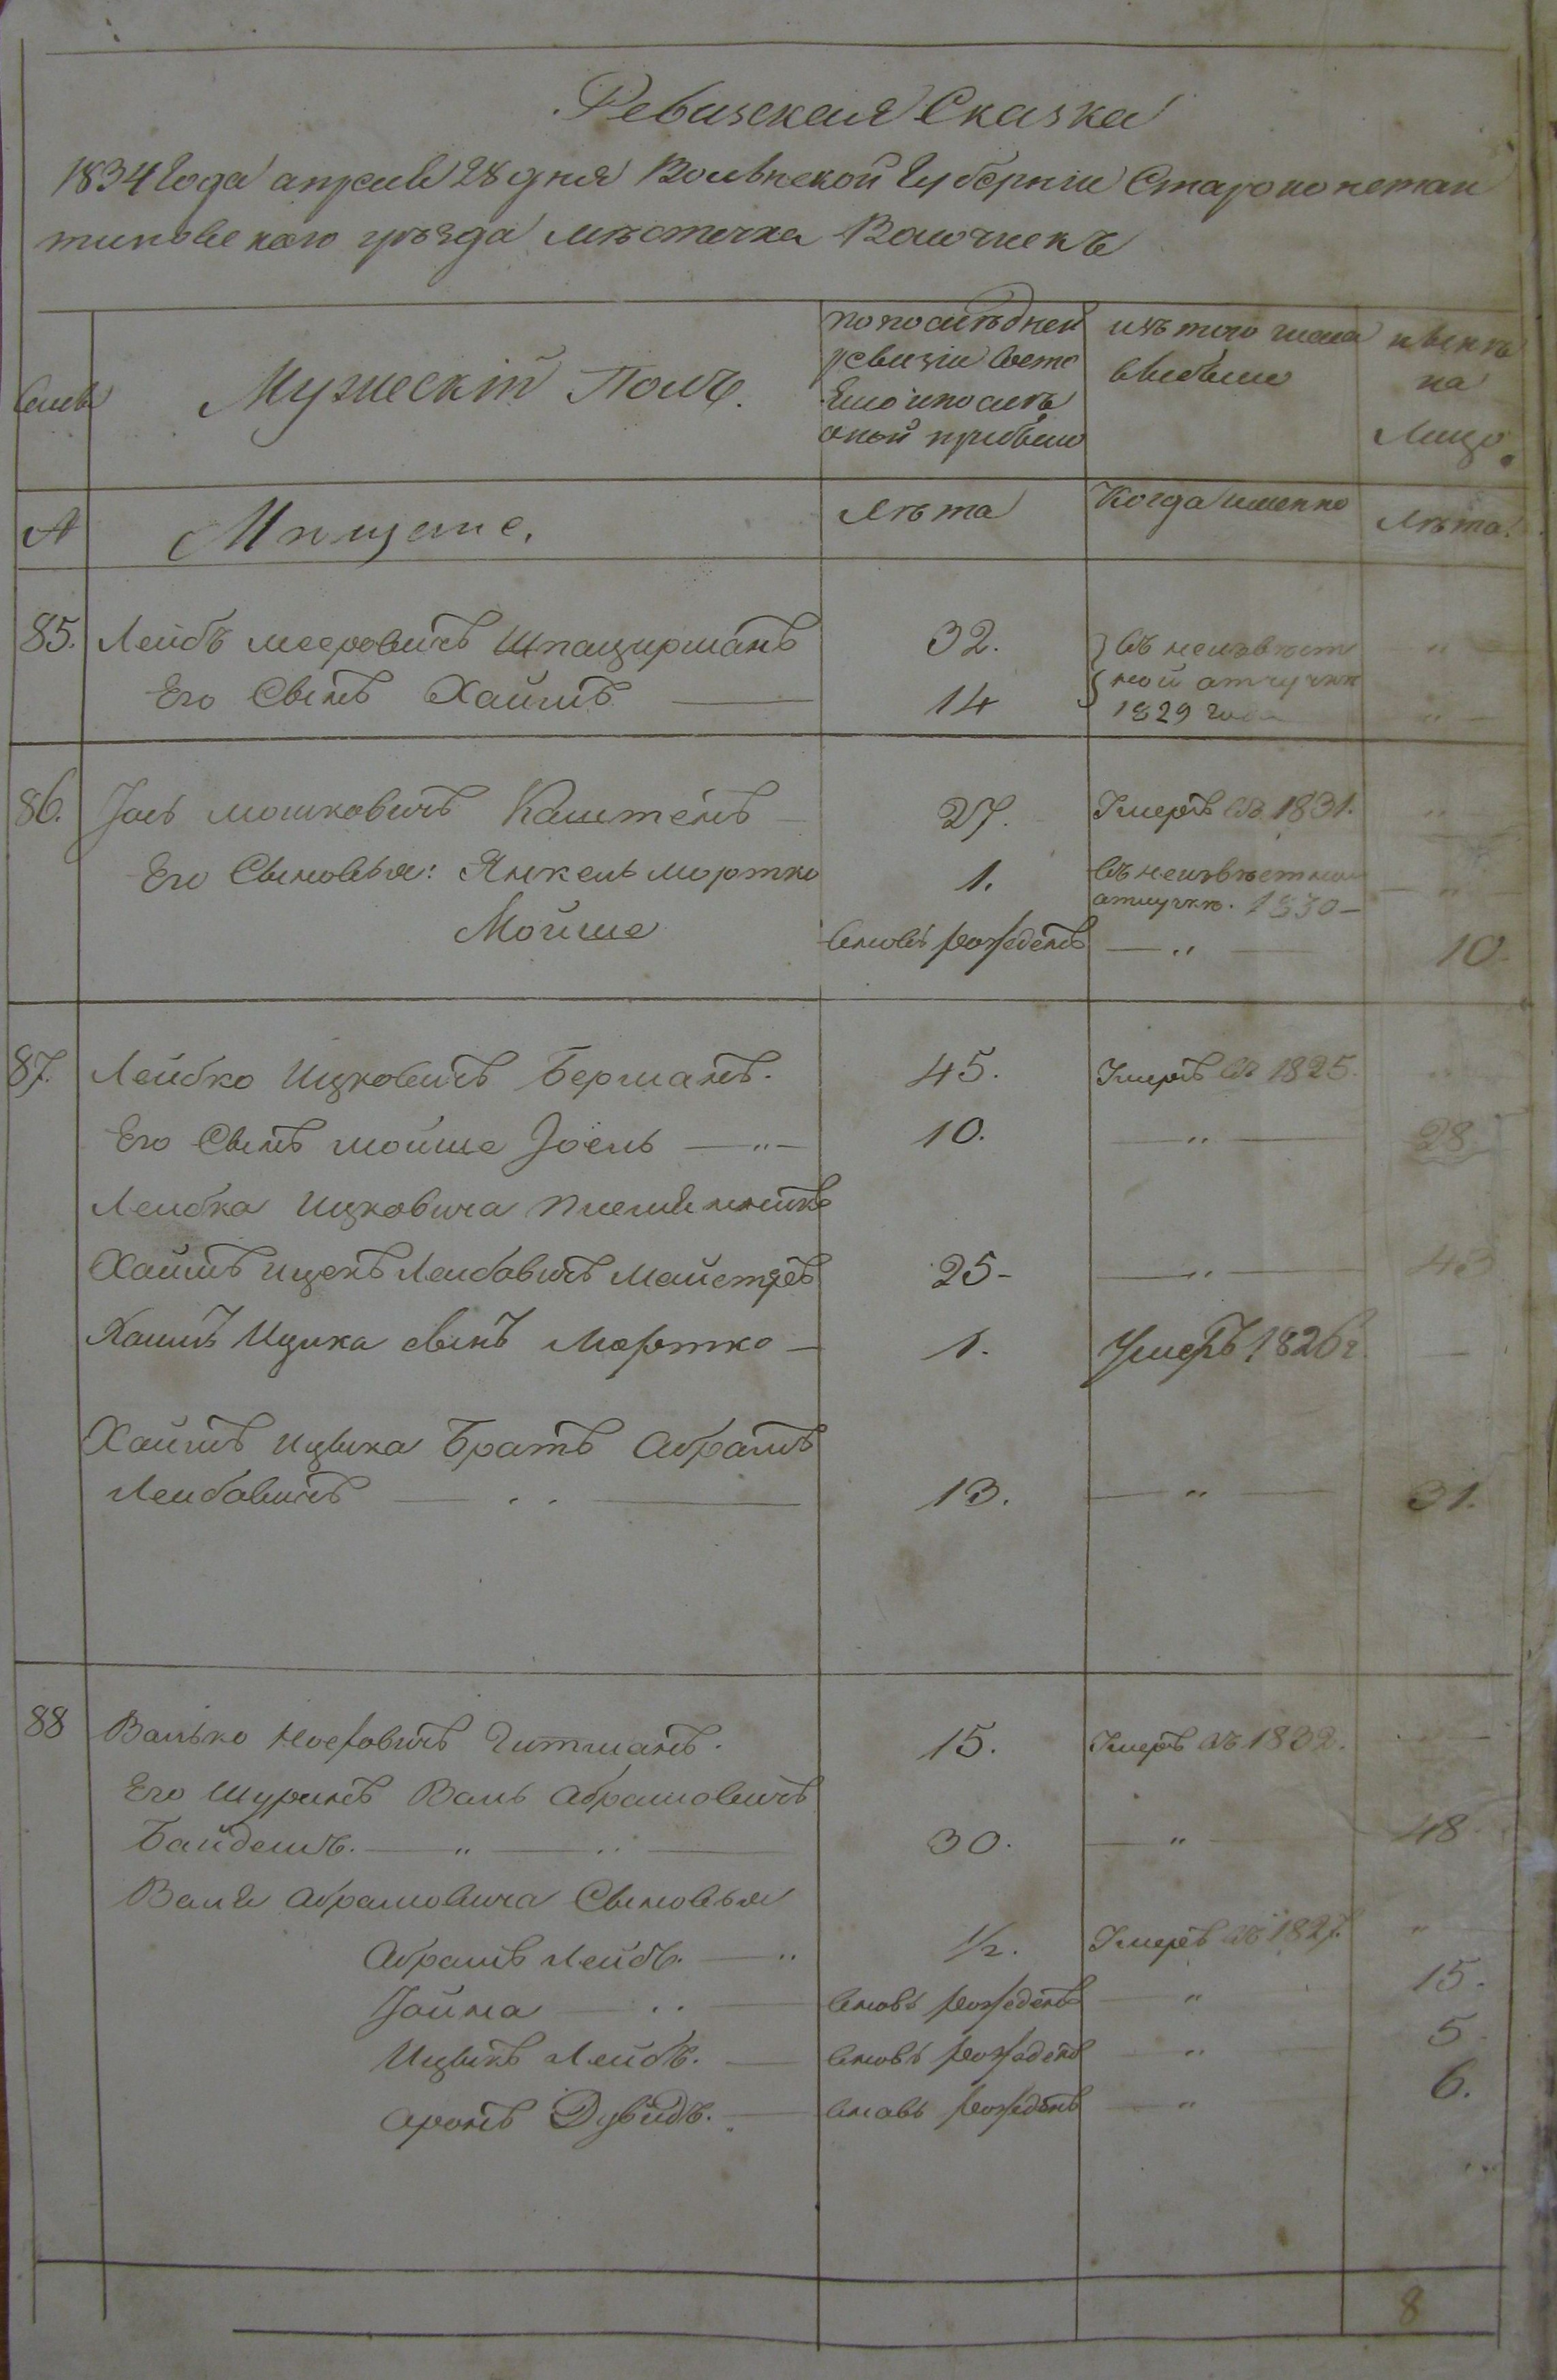 Ревизская Сказка
1834 Года апреля 28 дня Волынской Губерніи Староконстан
тиновского уѣзда мѣстечка Волочискъ
Семьи
Мужескій Полъ.
по послѣдней
ревизіи Состо
яло и послѣ
оной прибыло
изъ того числа
выбыло
нынѣ
на
Лицо.
А
Мѣщане.
Лѣта
Когда именно
Лѣта.
85. Лейбъ Мееровичъ Шпацирманъ 32. въ неизвѣст „
Его Сынъ Хаимъ — 14 ной отлучкѣ
1829 года „
86. Іось Мошковичъ Каштенъ — 27. Умеръ въ 1831. „
Его Сыновья: Янкель Мортко 1. въ неизвѣстной — „ —
отлучкѣ. 1830 —
Мойше вновь рожденъ — „ — 10.
87. Лейбко Ицковичъ Берманъ. 45. Умеръ въ 1825. „
Его Сынъ Мойше Іоель — „ — 10. — „ — 28.
Лейбка Ицковича племянникъ
Хаимъ Ицекъ Лейбовичъ Майстеръ 25 - — „ — 43
Хаимъ Ицика сынъ Мортко — 1. Умеръ 1826 г. —
Хаимъ Ицыка Братъ Абрамъ
Лейбовичъ — „ — 13. — „ — 31.
88 Волько Носовичъ Гитманъ. 15. Умеръ въ 1832. —
Его Шуринъ Воль Абрамовичъ
Байдемъ. — „ — „ — 30. — „ — 48.
Воля Абрамовича Сыновья
Абрамъ Лейбъ. — „ 1/2. Умеръ въ 1827. „
Іойна — „ — вновь рожденъ — „ — 15.
Ицыкъ Лейбъ. — вновь рожденъ — „ 5.
Аронъ Дувидъ. — вновь рожденъ — „ 6.
8